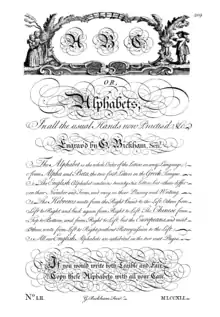 209
A B C
OR,
Alphabets,
In all the usual Hands now Practis'd, &c.
Engrav'd by G. Bickham, Sen.r
The Alphabet is the whole Order of the Letters in any Language
from Alpha and Beta, the two first Letters in the Greek Tongue.
The English Alphabet contains twenty four Letters, but these differ
in their Number and Form, and vary in their Placing and Writing.
The Hebrews wrote from the Right Hand to the Left. Others from
Left to Right, and back again from Right to Left. The Chinese from
Top to Bottom, and from Right to Left; but the Europeans and others
write from Left to Right, without Retrogression to the Left.
All our English Alphabets are exhibited in the two next Pages.
If you would write both Legible and Fair,
Copy these Alphabets with all your Care.
No. LII.
G. Bickham Fecit
MDCCXLI.